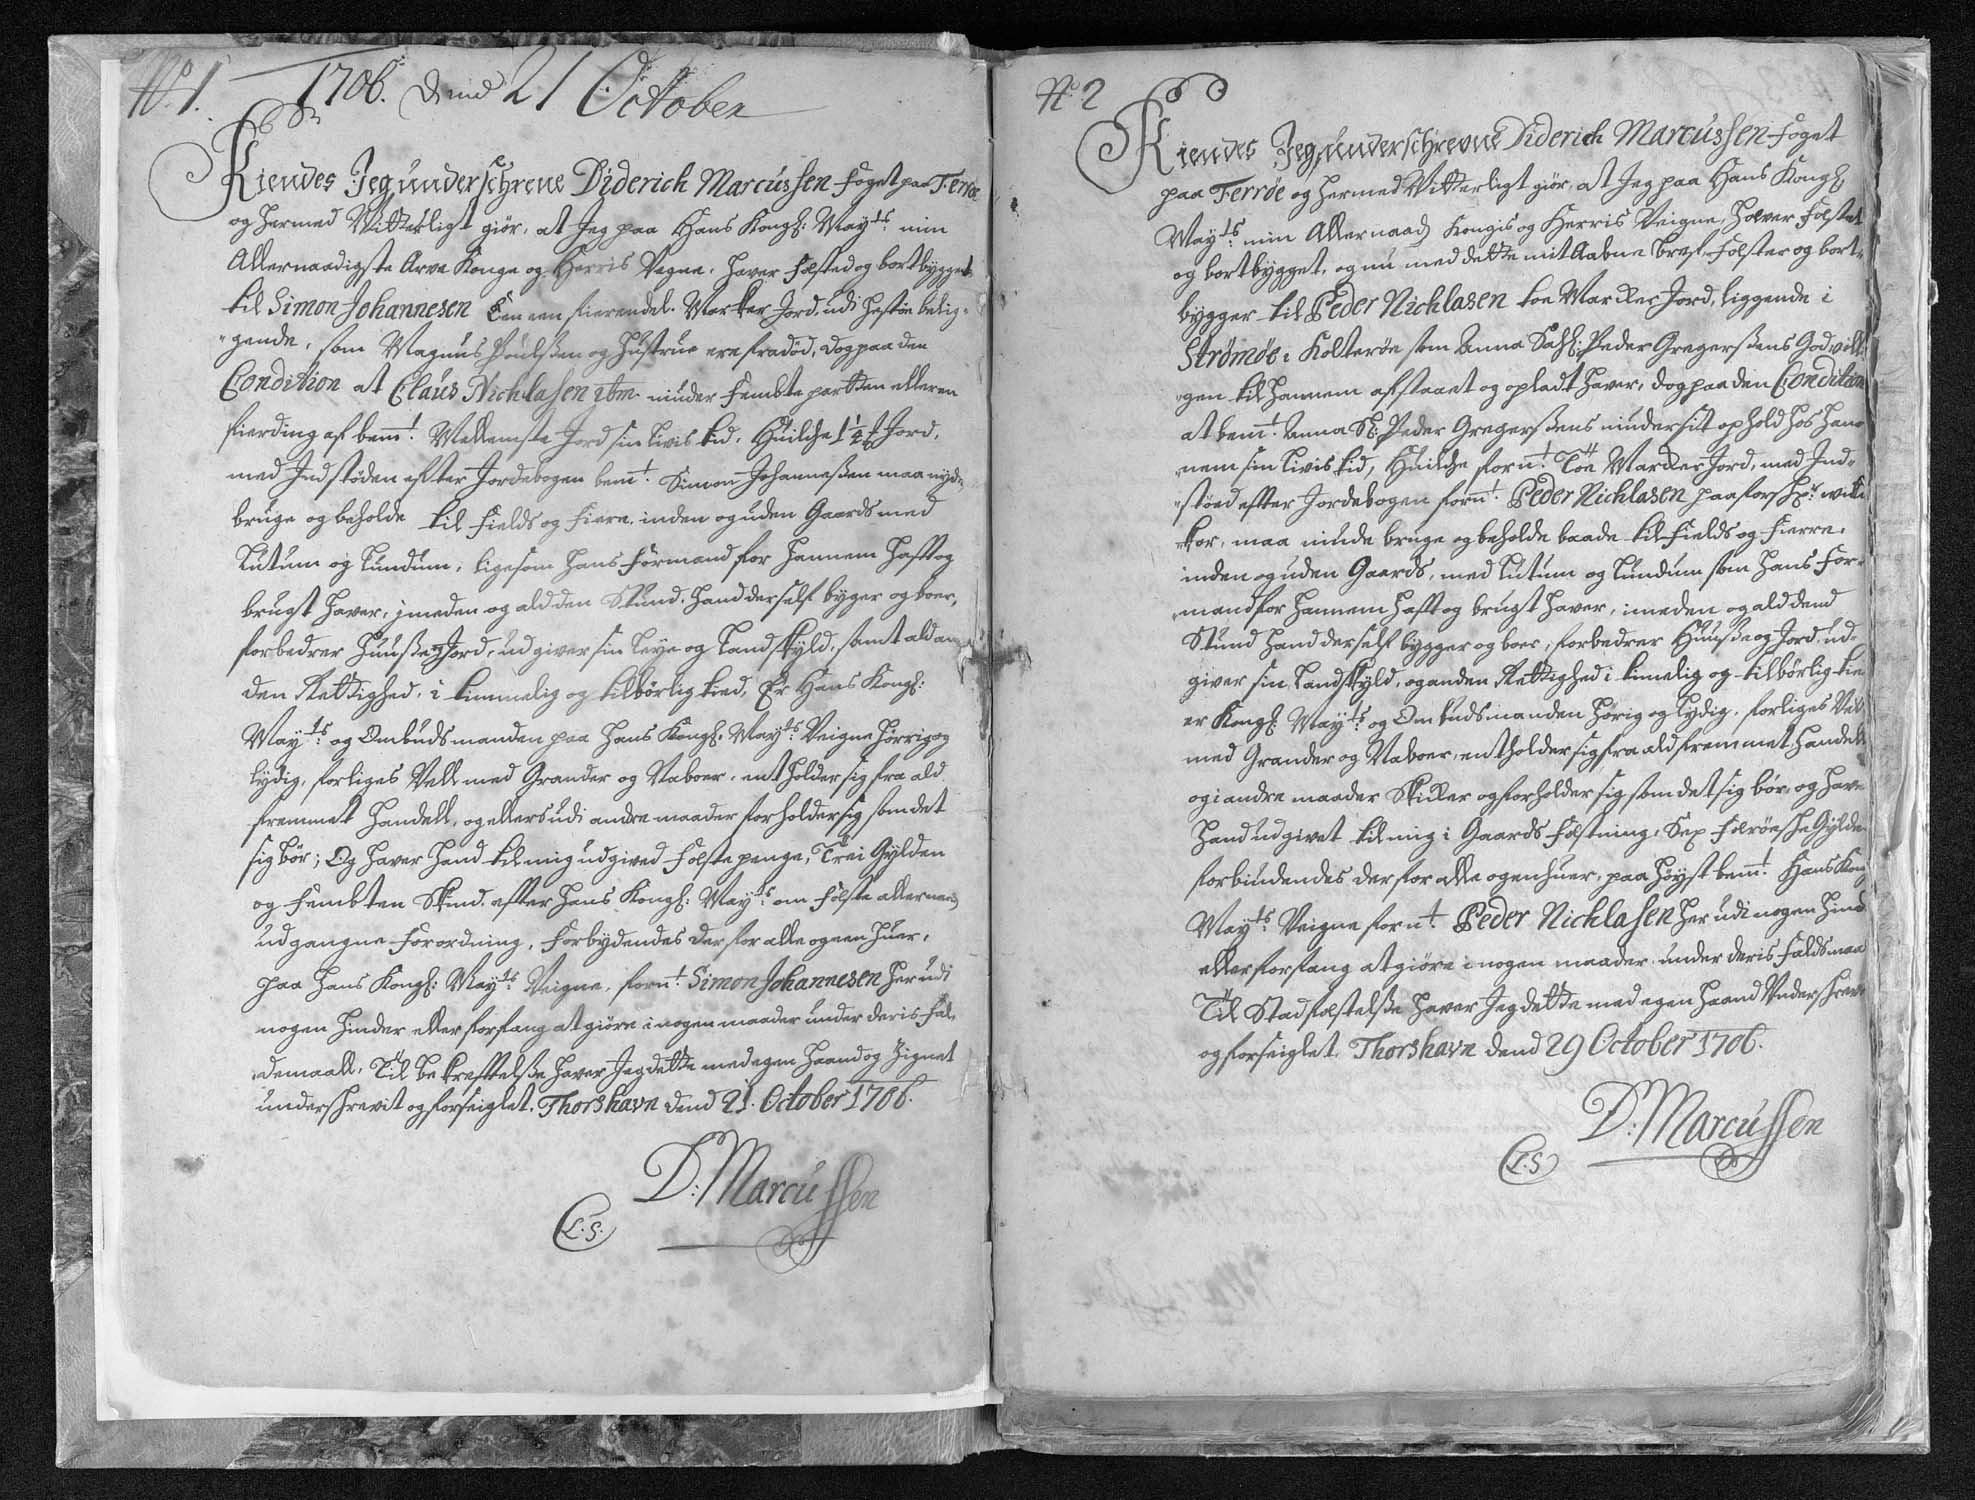 No. 1.
1706. Dend 21 October
Kiendes Jeg underschrene Diderich Marcussen foget paa Ferrøe
og hermed Vitterligt giør, at Jeg paa Hans Kongl: Mayts: min
Allernaadigste Arve Konge og Herris Vegne, haver fæsted og bortbygget
til Simon Johannesen Een een fierendel Marker Jord, udi Hestøe belig-
gende, som Magnus Poulssen og Hustrue ere fradød, dog paa den
Condition at Claus Nichlasen itm. niuder fembte parten eller en
fierding af bemt: Mellemste Jord sin livis tid, Huilche 1 1/4 Jord,
med Indstøden efter Jordebogen bemt: Simon Johannessen maa nyde
bruge og beholde til fields og fiere, inden og uden Gaards med
Lutum og Lundum, ligesom hans formand for hannem hafft og
brugt haver, imeden og ald den Stund, hand der self byger og boer,
forbedrer Huusse og Jord, udgiver sin Leye og Landskyld, samt ald an-
den Rettighed, i timmelig og tilbørlig tied, Er Hans Kongl:
Mayts: og Ombudsmanden paa Hans Kongl: Mayts: Veigne hørrig og
lydig, forliges Vell med Grander og Naboer, entholder sig fra ald
fremmet handell, og ellers udi andre maader forholder sig som det
sig bør; Og haver hand til mig udgived fæste penge, Trei Gylden
og fembten Skind, efter Hans Kongl: Mayts: om fæste allernaad
udgangne forordning, forbydendes derfor alle og een huer,
paa Hans Kongl: Mayts: Veigne, fornt: Simon Johannesen her udi
nogen hinder eller forfang at giøre i nogen maader under deris fal-
demaall, Til bekrefftelsse haver Jeg dette med egen haand og Zignet
underskrevit og forseiglet. Thorshavn dend 21. October 1706.
D: Marcussen
L.S.
No. 2
Kiendes Jeg underschrevne Diderich Marcussen foget
paa Ferrøe og hermed Vitterligt giør, at Jeg paa Hans Kongl:
Mayts: min Allernaad: Kongis og Herris Veigne, haver fæstet
og bortbygget, og nu med dette mit Aabne bref, fæster og bort-
bygger til Peder Nichlasen toe Marker Jord, liggende i
Strømøe i Kolterøe som Anna Sahl: Peder Gregerssens godvill-
gen til hannem afstaaet og opladt haver, dog paa den Condition
at bemt: Anna Sl: Peder Gregerssens niuder sit ophold hos han-
nem sin livis tid, Huilche fornt: Toe Marker Jord, med Ind-
støed effter Jordebogen fornt: Peder Nichlasen paa forschr: vill-
kor, maa niude bruge og beholde baade til fields og fierre,
inden og uden Gaards, med Lutum og Lundum som hans for-
mand for hannem hafft og brugt haver, imeden og ald dend
Stund hand der self bygger og boer, forbedrer Huusse og Jord, ud-
giver sin Landskyld, og anden Rettighed i timelig og tilbørlig tie
er Kongl: Mayts: og Ombudsmanden hørig og lydig, forliges Vel
med Grander og Naboer, entholder sig fra ald fremmet handell
og i andre maader skicker og forholder sig som det sig bør, og haver
hand udgivet til mig i Gaards fæstning, Sex færøeske Gylden
forbindendes derfor alle og en huer, paa høyst bemt: Hans Kong
Mayts: Veigne fornt: Peder Nichlasen her udi nogen hind
eller forfang at giøre i nogen maader under deris faldsmaa
Til Stadfæstelsse haver Jeg dette med egen haand Underskreve
og forseiglet. Thorshavn dend 29 October 1706.
D: Marcussen
L.S